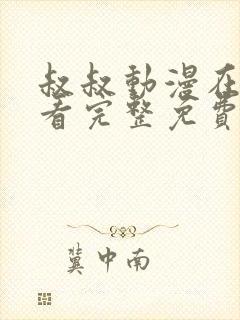 叔叔動漫在
看完整免費
冀中南